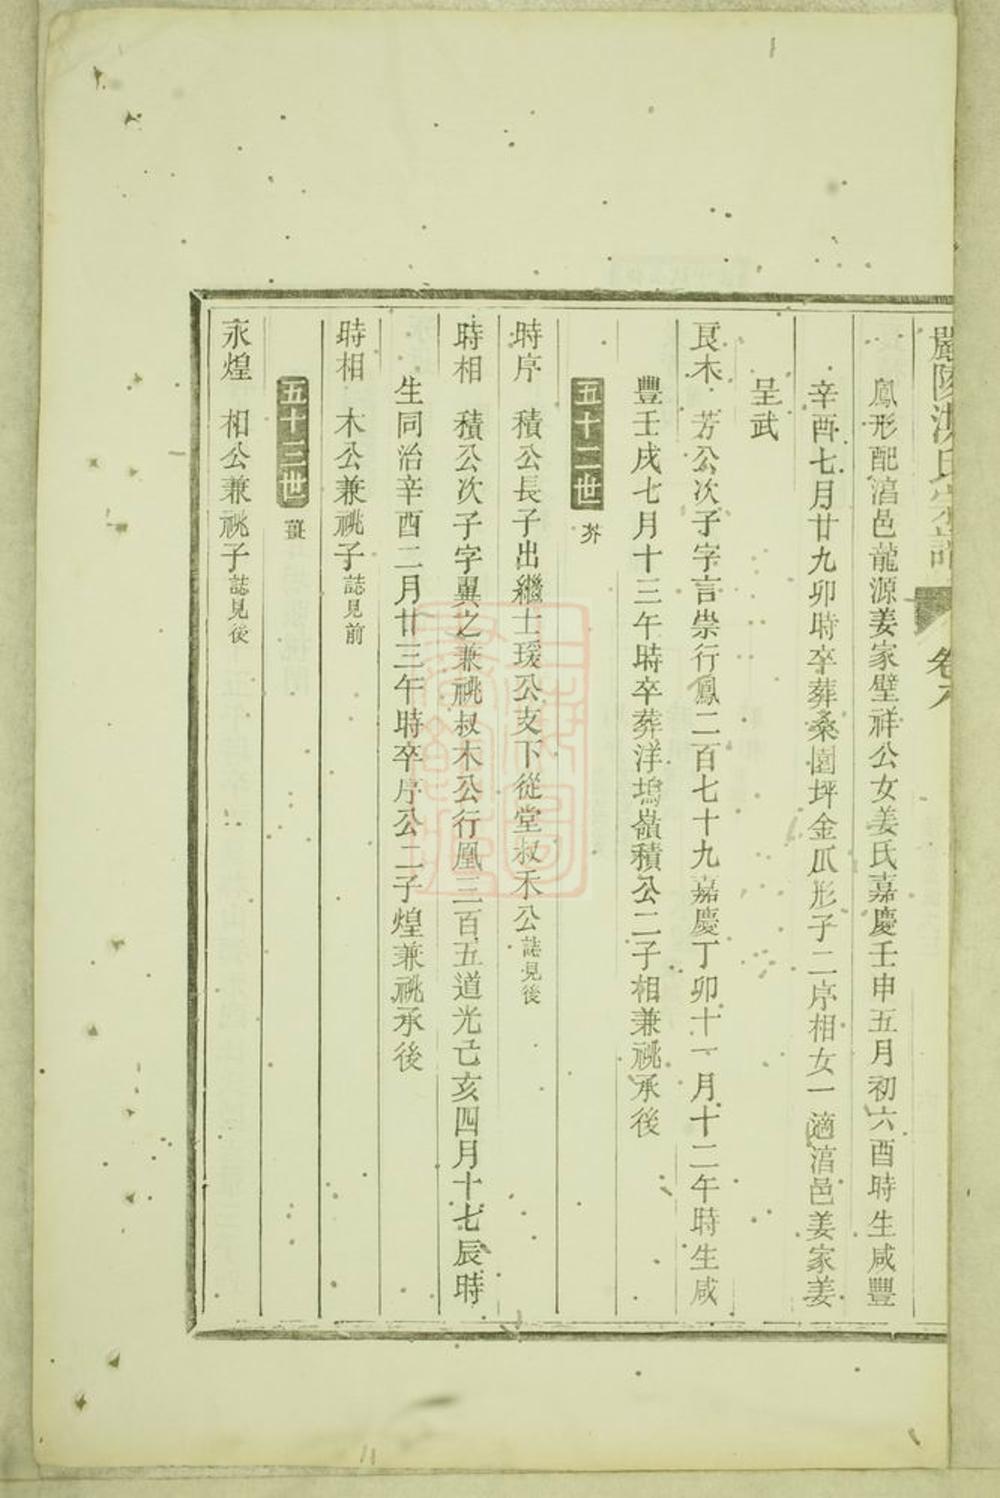 嚴陵洪氏宗譜 卷六
鳳形配湻邑龍源姜家壁祥公女姜氏嘉慶壬申五月初六酉時生咸豐
辛酉七月廿九卯時卒葬桑園坪金瓜形子二序相女一適湻邑姜家姜
呈武
良木 芳公次子字言崇行鳳二百七十九嘉慶丁卯十一月十二午時生咸
豐壬戌七月十三午時卒葬洋塢嶺積公二子相兼祧承後
五十二世 芥
時序 積公長子出繼士瑗公支下從堂叔禾公誌見後
時相 積公次子字翼之兼祧叔木公行凰三百五道光己亥四月十七辰時
生同治辛酉二月廿三午時卒序公二子煌兼祧承後
時相 木公兼祧子誌見前
五十三世 薑
永煌 相公兼祧子誌見後